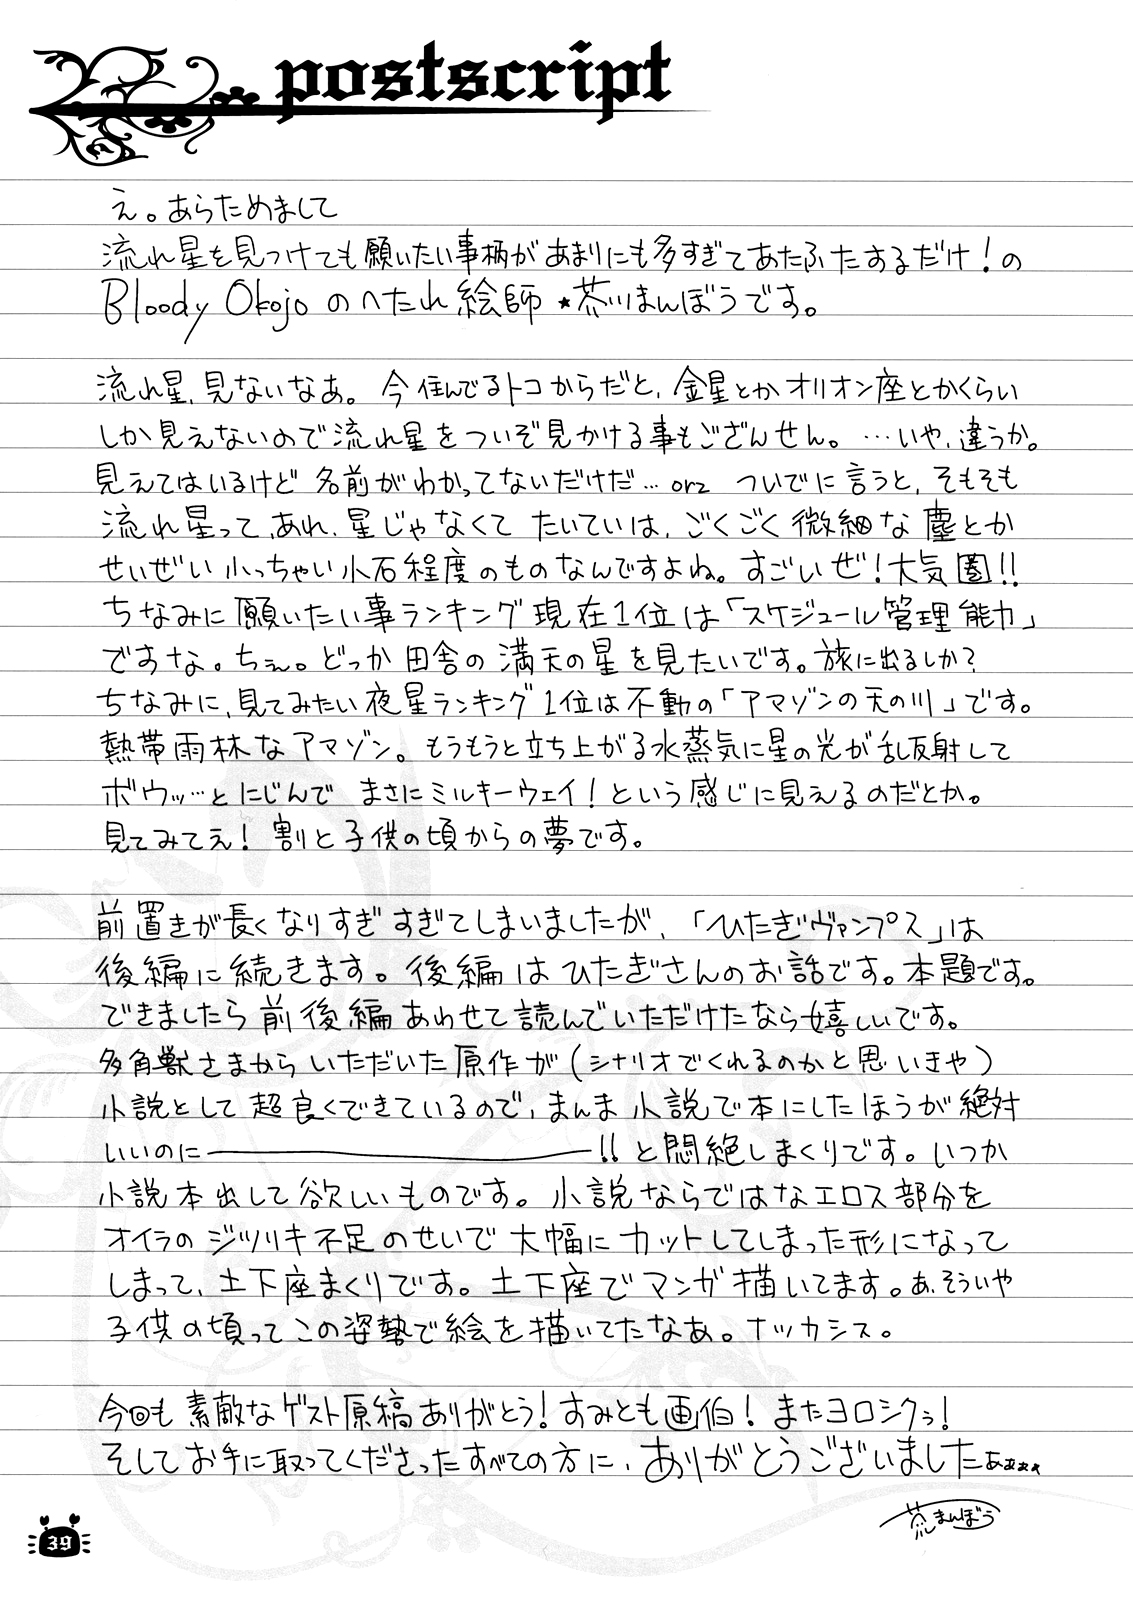 postscript
え。あらためまして
流れ星を見つけても願いたい事柄があまりにも多すぎてあたふたするだけ！の
Bloody Okojo のへたれ絵師★茶川まんぼうです。
流れ星、見ないなあ。今住んでるトコからだと、金星とかオリオン座とかくらい
しか見えないので流れ星をついぞ見かける事もござんせん。…いや、違うか。
見えてはいるけど名前がわかってないだけだ…orz ついでに言うと、そもそも
流れ星って、あれ、星じゃなくて たいていは、ごくごく微細な塵とか
せいぜい小っちゃい小石程度のものなんですよね。すごいぜ！大気圏!!
ちなみに願いたい事ランキング現在1位は「スケジュール管理能力」
ですな。ちぇ。どっか田舎の満天の星を見たいです。旅に出るしか？
ちなみに、見てみたい夜星ランキング1位は不動の「アマゾンの天の川」です。
熱帯雨林なアマゾン。もうもうと立ち上がる水蒸気に星の光が乱反射して
ボウッ…とにじんで まさにミルキーウェイ！という感じに見えるのだとか。
見てみてえ！割と子供の頃からの夢です。
前置きが長くなりすぎすぎてしまいましたが、「ひたぎヴァンプス」は
後編に続きます。後編はひたぎさんのお話です。本題です。
できましたら前後編あわせて読んでいただけたなら嬉しいです。
多角獣さまからいただいた原作が(シナリオでくれるのかと思いきや)
小説として超良くできているので、まんま小説で本にしたほうが絶対
いいのに――――――!!と悶絶しまくりです。いつか
小説本出して欲しいものです。小説ならではなエロス部分を
オイラのジツリキ不足のせいで大幅にカットしてしまった形になって
しまって、土下座まくりです。土下座でマンガ描いてます。あ、そういや
子供の頃ってこの姿勢で絵を描いてたなあ。ナツカシス。
今回も素敵なゲスト原稿ありがとう！すみとも画伯！またヨロシクぅ！
そしてお手に取ってくださったすべての方に、ありがとうございましたぁぁぁぁ
まんぼう
39